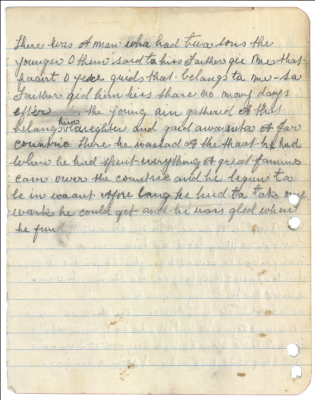 there wes A man wha had twa sons the
younger O them said ta his Faither gie me that
paart O yere guids that belangs ta me - Sa
Faither gied him his share no mony days
efter the young ain gathered A that
belangs him taegither and gaed awa inta A far
countrie there he wasted A the thaat he had
When he had spent everything A great famine
cam ower the countrie and he begun ta
be in waant Afore lang he hied ta tak ony
wark he could get and he wais gled when
he fun